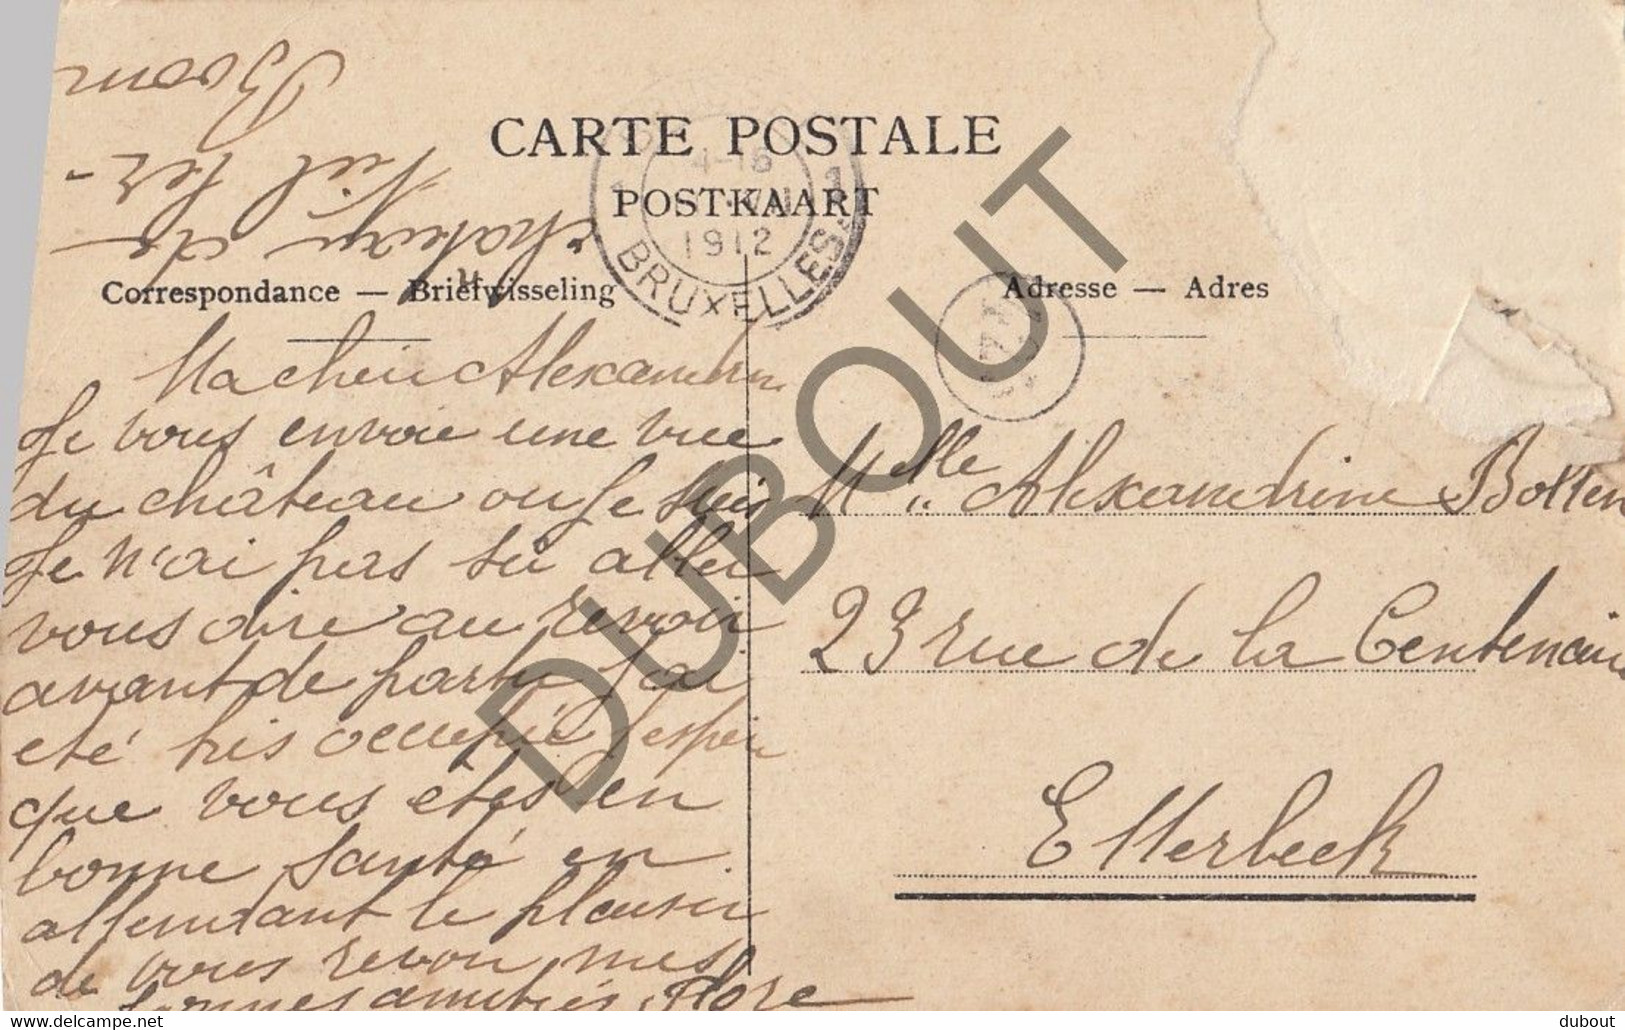 CARTE POSTALE
POSTKAART
4-15
1912
BRUXELLES
1 1
Correspondance — Briefwisseling
Adresse — Adres
château de
Niel lez-
Boom
Ma chère Alexandrine
Je vous envoie une vue
du château ou je suis
Je n'ai pas su aller
vous dire au revoir
avant de partir j'ai
eté tris occupié j'espère
que vous etes en
bonne santé en
attendant le plaisir
de vous revoir mes
bonnes amitiés Flore
Melle Alexandrine Botten
23 rue de la Centenaire
Etterbeek
DUBOUT
delcampe.net
dubout